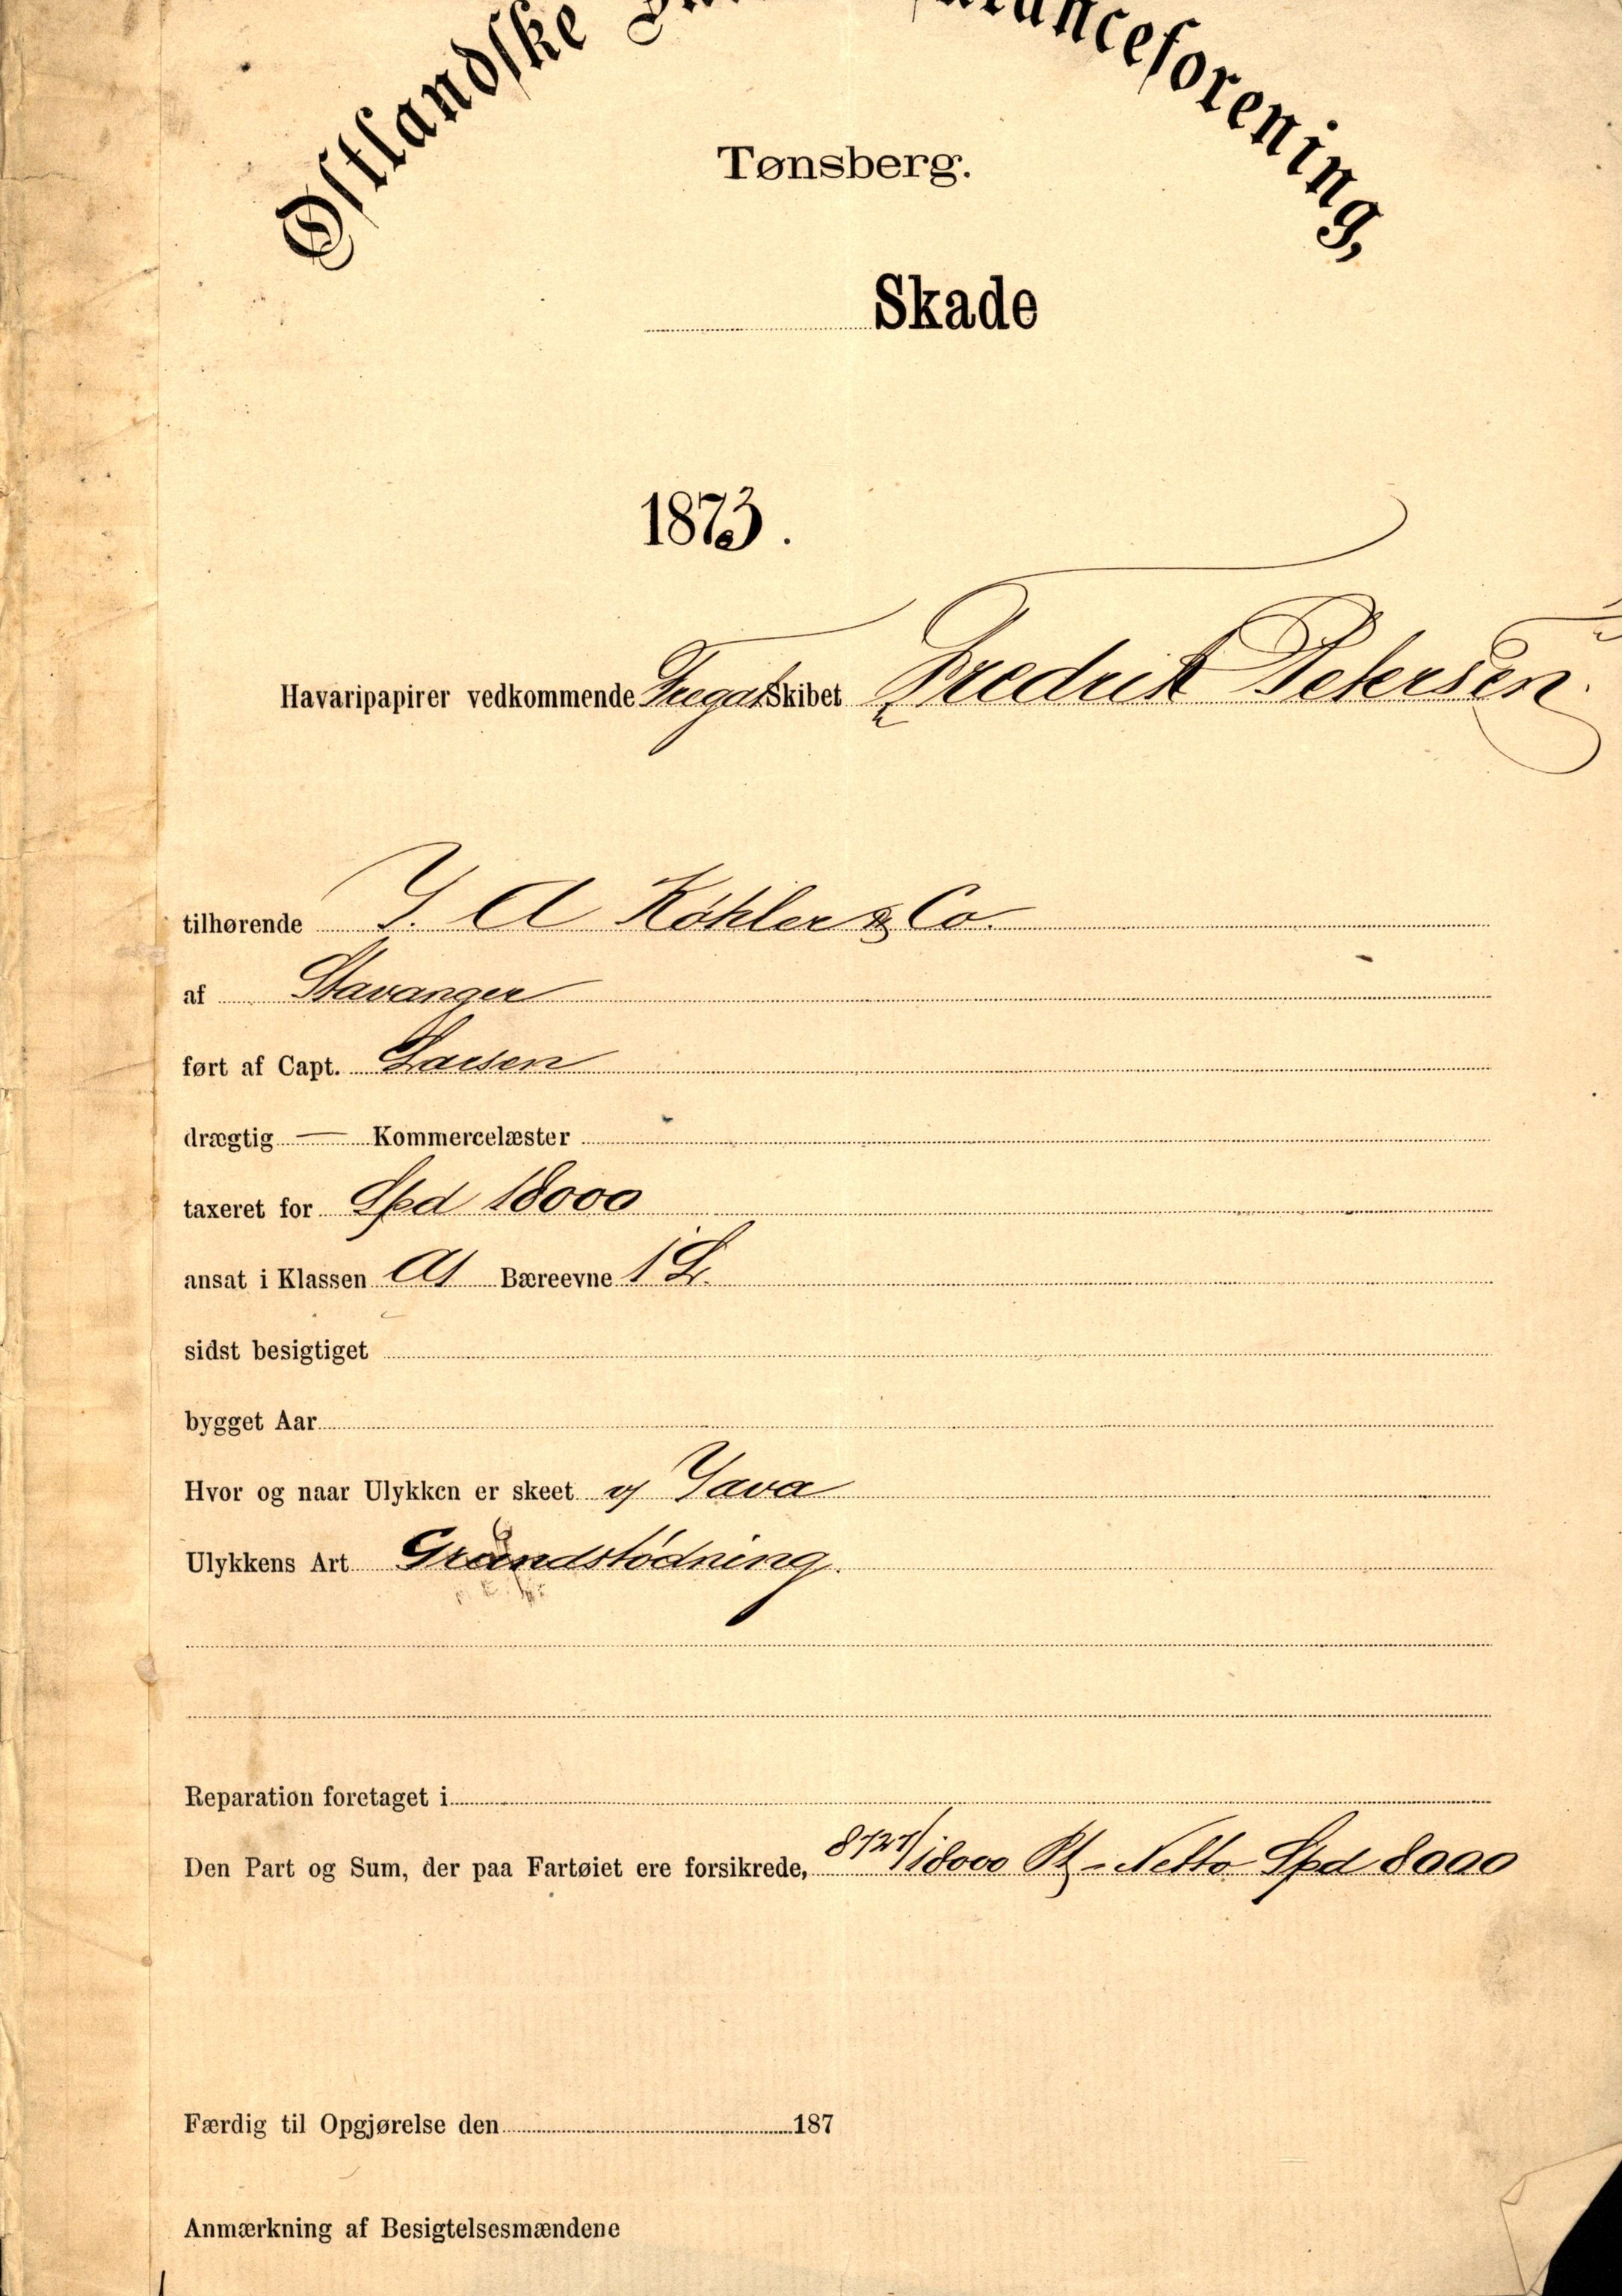 Østlandske
anceforening,
Tønsberg.
Skade
1873.
Havaripapirer vedkommende Fregat Skibet Fredrik Petersen
tilhørende J. A Køhler & Co.
af Stavanger
ført af Capt. Larsen
drægtig — Kommercelæster
taxeret for Spd 18000
ansat i Klassen A1 Bæreevne 1 L.
sidst besigtiget
bygget Aar
Hvor og naar Ulykken er skeet v/ Java
Ulykkens Art Grundstødning.
Reparation foretaget i
Den Part og Sum, der paa Fartøiet ere forsikrede, 8727/18000 Pt - Netto Spd 8000
Færdig til Opgjørelse den 187
Anmærkning af Besigtelsesmændene